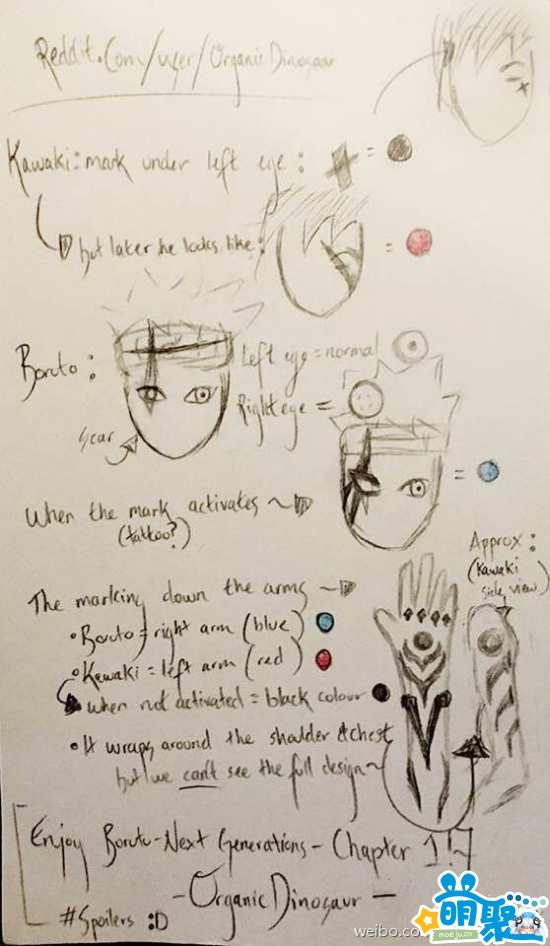 Reddit.Com/user/OrganicDinosaur
Kawaki: mark under left eye: X =
but later he looks like: =
Boruto:
Left eye = normal
Right eye =
scar
When the mark activates
(tattoo?)
=
Approx:
(Kawaki
side view)
The marking down the arms
• Boruto = right arm (blue)
• Kawaki = left arm (red)
when not activated = black colour
• It wraps around the shoulder & chest
but we can't see the full design~
Enjoy Boruto-Next Generations- Chapter 1!?
-OrganicDinosaur-
#Spoilers :D
weibo.co
萌聚
moeju.cn